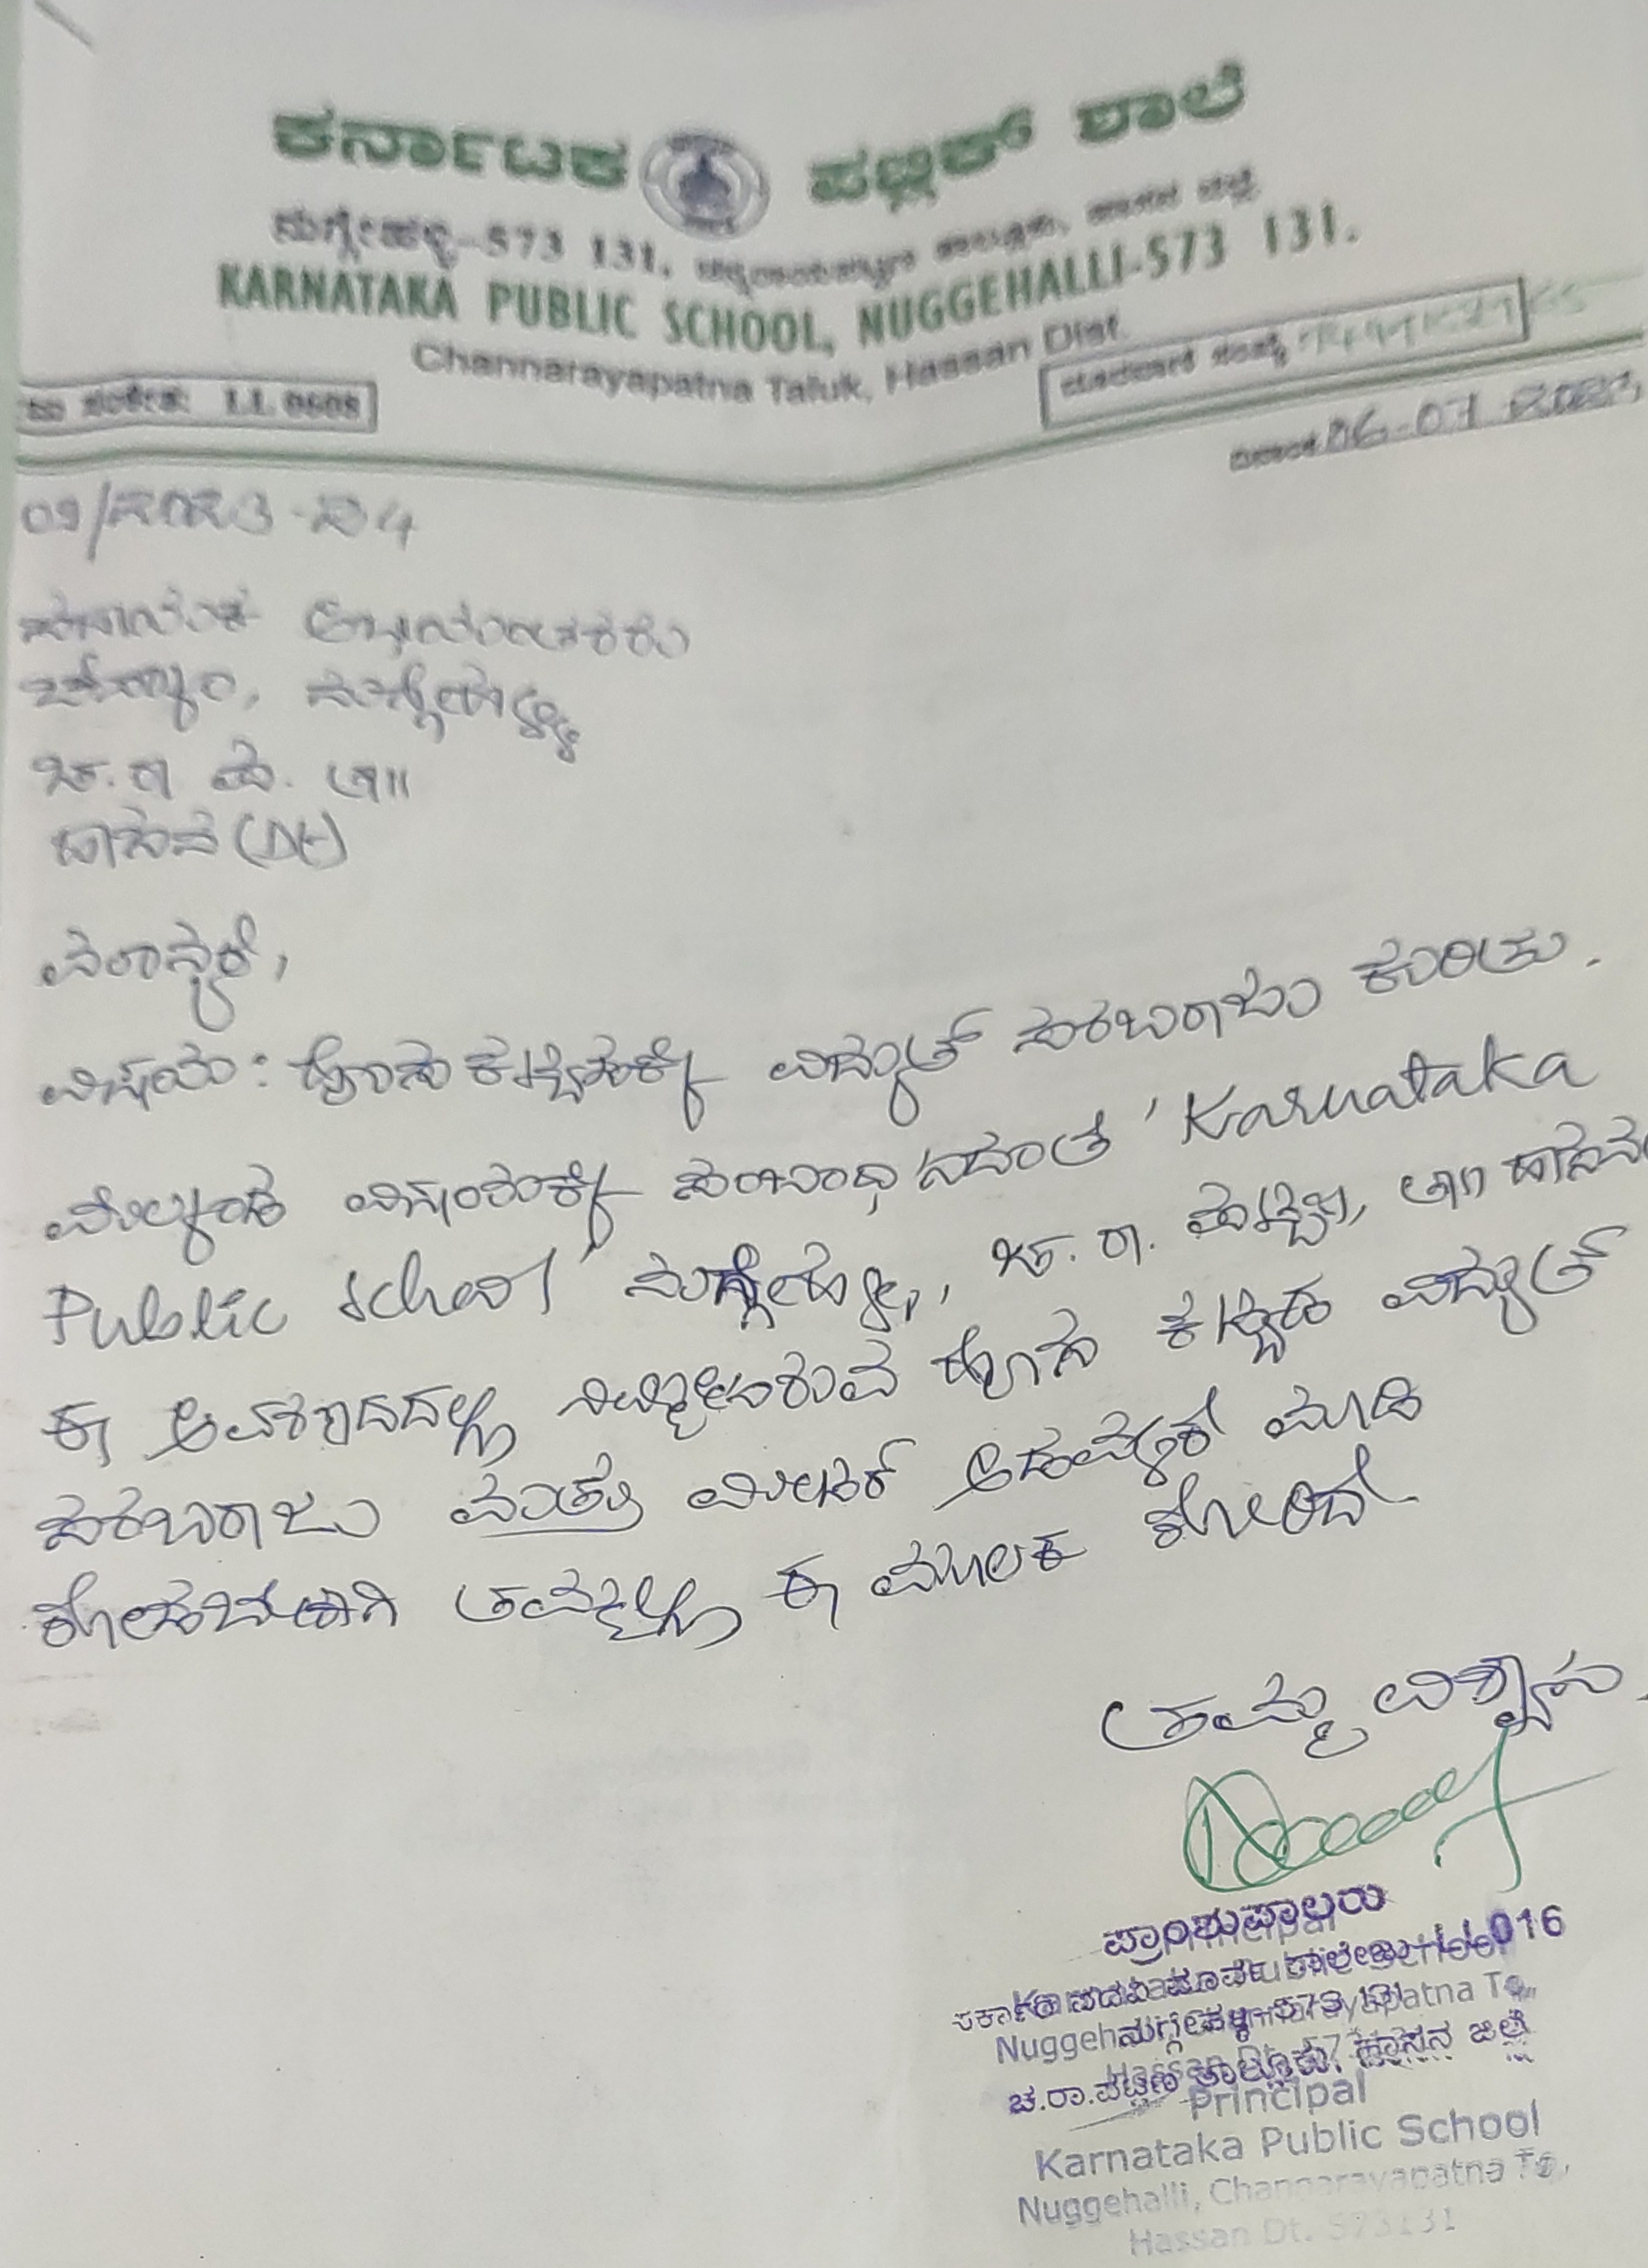 ಕರ್ನಾಟಕ ಪಬ್ಲಿಕ್ ಶಾಲೆ
ನುಗ್ಗೇಹಳ್ಳಿ-573 131, ಚನ್ನರಾಯಪಟ್ಟಣ ತಾಲ್ಲೂಕು, ಹಾಸನ ಜಿಲ್ಲೆ.
KARNATAKA PUBLIC SCHOOL, NUGGEHALLI-573 131.
Channarayapatna Taluk, Hassan Dist.
LL 0608
ದಿನಾಂಕ 06-07
09/2023-24
ಸಹಾಯಕ
ನುಗ್ಗೇಹಳ್ಳಿ
ಚ.ರಾ.ಪ. ತಾ॥
ಹಾಸನ (Dt)
ಮಾನ್ಯರೆ,
ವಿಷಯ: ಹೊಸ ಕಟ್ಟಡಕ್ಕೆ ವಿದ್ಯುತ್ ಸರಬರಾಜು ಕುರಿತು.
ಮೇಲ್ಕಂಡ ವಿಷಯಕ್ಕೆ ಸಂಬಂಧಿಸಿದಂತೆ 'Karnataka
Public School' ನುಗ್ಗೇಹಳ್ಳಿ, ಚ.ರಾ. ಪಟ್ಟಣ, ತಾ॥ ಹಾಸನ
ಈ ಆವರಣದಲ್ಲಿ ನಿರ್ಮಿಸಿರುವ ಹೊಸ ಕಟ್ಟಡ ವಿದ್ಯುತ್
ಸರಬರಾಜು ಮತ್ತು ಮೀಟರ್ ಅಳವಡಿಕೆ ಮಾಡಿ
ಕೊಡಬೇಕಾಗಿ ತಮ್ಮಲ್ಲಿ ಈ ಮೂಲಕ ಕೋರಿದೆ.
ತಮ್ಮ ವಿಶ್ವಾಸಿ
ಪ್ರಾಂಶುಪಾಲರು
ಸರ್ಕಾರಿ ಪದವಿ ಪೂರ್ವ ಕಾಲೇಜು-LL016
ನುಗ್ಗೇಹಳ್ಳಿ-573 131
ಚ.ರಾ.ಪಟ್ಟಣ ತಾಲ್ಲೂಕು, ಹಾಸನ ಜಿಲ್ಲೆ
Principal
Karnataka Public School
Nuggehalli, Channarayapatna Tq,
Hassan Dt. 573131